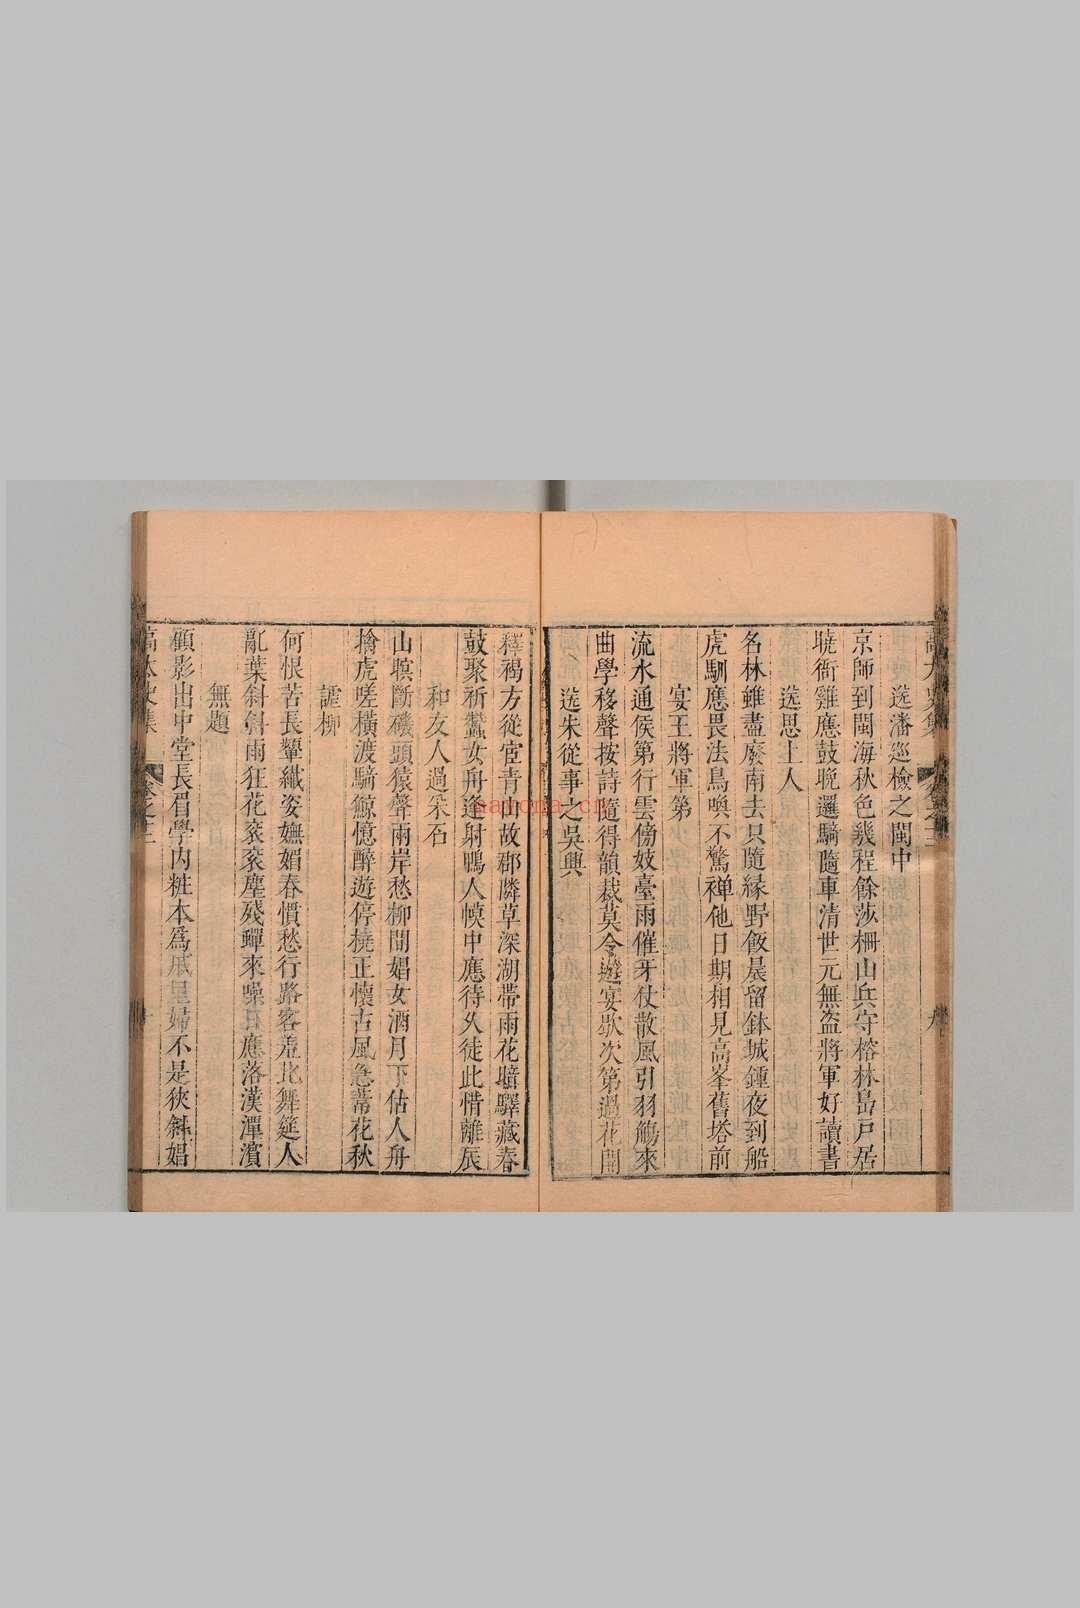 高太史集
送潘巡檢之閩中
京師到閩海秋色幾程餘莎柵山兵守榕林島戸居
曉衙雞應鼓晚邏騎隨車清世元無盗將軍好讀書
送思上人
名林雖盡廢南去只隨縁野飯晨留鉢城鍾夜到船
虎馴應畏法鳥喚不驚禅他日期相見高峯舊塔前
宴王將軍第
流水通侯第行雲傍妓臺雨催牙仗散風引羽觴來
曲學移聲按詩隨得韻裁莫令遊宴歇次第過花開
送朱從事之吳興
釋褐方從宦青山故郡隣草深湖帶雨花暗驛藏春
鼓聚祈蠶女舟逢射鴨人幙中應待乆徒此惜離辰
和友人過采石
山暝斷磯頭猿聲兩岸愁柳間娼女酒月下估人舟
擒虎嗟橫渡騎鯨憶醉遊停橈正懷古風急葦花秋
謔柳
何恨苦長顰纖姿嫵媚春慣愁行路客羞比舞筵人
亂葉斜斜雨狂花衮衮塵殘蟬來噪日應落漢潭濱
無題
顧影出中堂長眉學内粧本爲戚里婦不是狹斜娼
高太史集
卷之十二
十
nayona.cn